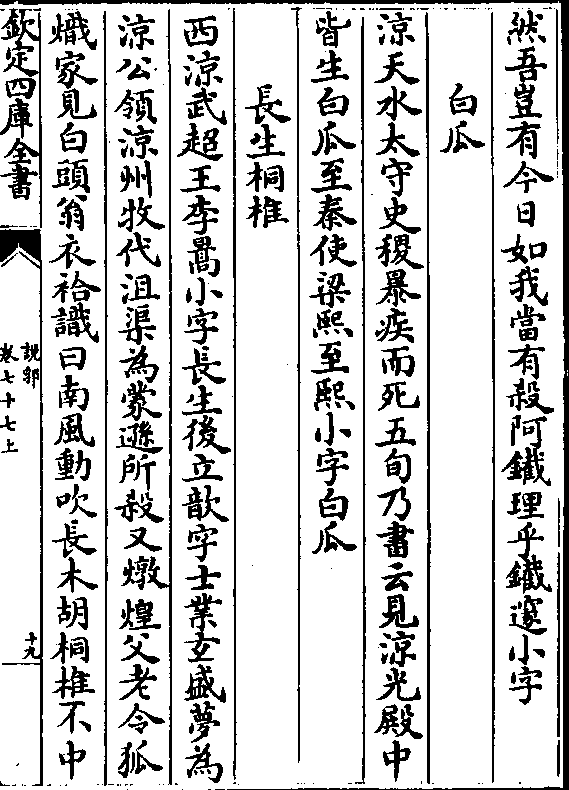 然吾豈有今日如我當有殺阿鐵理乎鐵邃小字
白瓜
涼天水太守史稷暴疾而死五旬乃書云見涼光殿中
皆生白瓜至秦使梁熙至熙小字白瓜
長生桐椎
西涼武超王李暠小字長生後立歆字士業玄盛夢為
涼公領涼州牧代沮渠為蒙遜所殺又燉煌父老令狐
熾家見白頭翁衣袷識曰南風動吹長木胡桐椎不中
欽定四庫全書
說郛
卷七十七上
十九